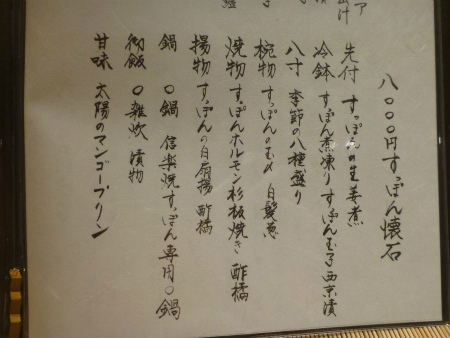 八〇〇〇円すっぽん懐石
先付 すっぽんの生姜煮
冷鉢 すっぽん煮凍り すっぽん玉子西京漬
八寸 季節の八種盛り
椀物 すっぽんのむ〆 白髪葱
焼物 すっぽんホルモン杉板焼き 酢橘
揚物 すっぽんの唐揚 酢橘
鍋 〇鍋 信楽焼すっぽん専用〇鍋
御飯 〇雑炊 漬物
甘味 太陽のマンゴープリン